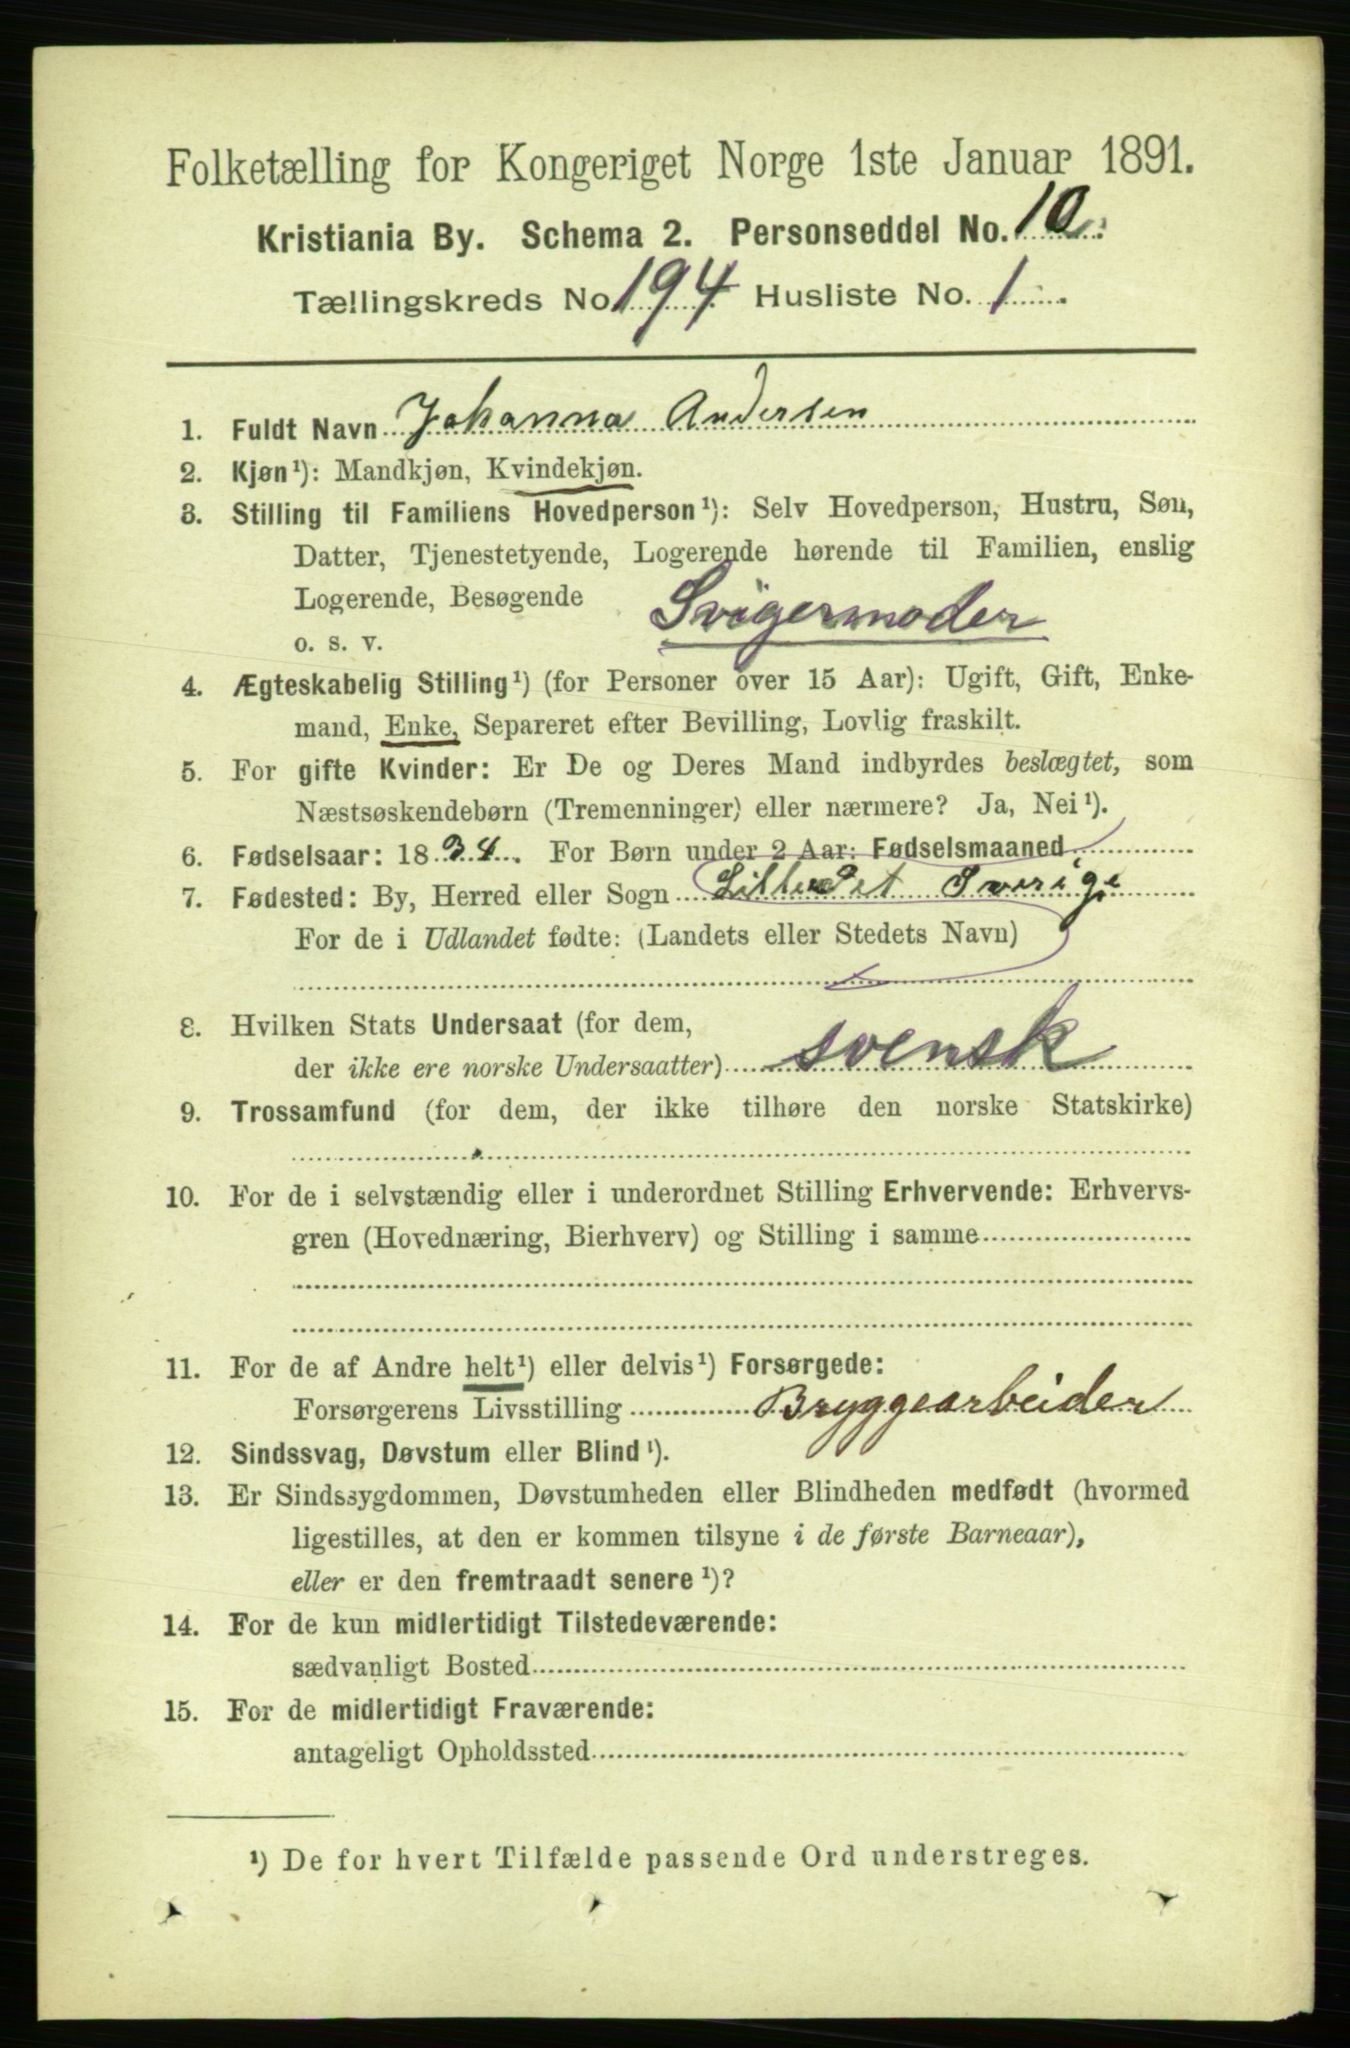 Folketælling for Kongeriget Norge 1ste Januar 1891.
Kristiania By. Schema 2. Personseddel No. 10.
Tællingskreds No. 194 Husliste No. 1.
1. Fuldt Navn Johanna Andersen
2. Kjøn¹): Mandkjøn, Kvindekjøn.
3. Stilling til Familiens Hovedperson¹): Selv Hovedperson, Hustru, Søn,
Datter, Tjenestetyende, Logerende hørende til Familien, enslig
Logerende, Besøgende Svigermoder
o. s. v.
4. Ægteskabelig Stilling¹) (for Personer over 15 Aar): Ugift, Gift, Enke-
mand, Enke, Separeret efter Bevilling, Lovlig fraskilt.
5. For gifte Kvinder: Er De og Deres Mand indbyrdes beslægtet, som
Næstsøskendebørn (Tremenninger) eller nærmere? Ja, Nei¹).
6. Fødselsaar: 1834. For Børn under 2 Aar: Fødselsmaaned
7. Fødested: By, Herred eller Sogn Lilledet Sverige
For de i Udlandet fødte: (Landets eller Stedets Navn)
8. Hvilken Stats Undersaat (for dem,
der ikke ere norske Undersaatter) svensk
9. Trossamfund (for dem, der ikke tilhøre den norske Statskirke)
10. For de i selvstændig eller i underordnet Stilling Erhvervende: Erhvervs-
gren (Hovednæring, Bierhverv) og Stilling i samme
11. For de af Andre helt¹) eller delvis¹) Forsørgede:
Forsørgerens Livsstilling Bryggearbeider
12. Sindssvag, Døvstum eller Blind¹).
13. Er Sindssygdommen, Døvstumheden eller Blindheden medfødt (hvormed
ligestilles, at den er kommen tilsyne i de første Barneaar),
eller er den fremtraadt senere¹)?
14. For de kun midlertidigt Tilstedeværende:
sædvanligt Bosted
15. For de midlertidigt Fraværende:
antageligt Opholdssted
¹) De for hvert Tilfælde passende Ord understreges.